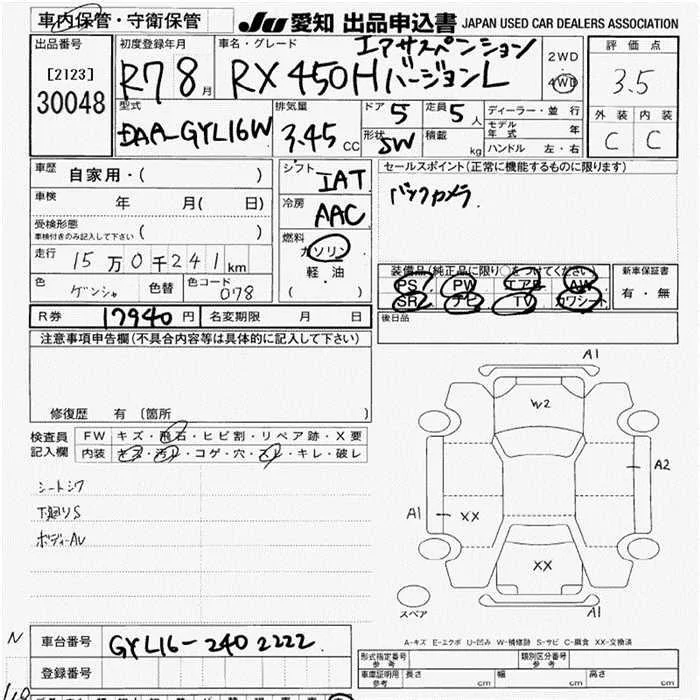 車内保管・守衛保管
JU 愛知 出品申込書 JAPAN USED CAR DEALERS ASSOCIATION
出品番号
[2123]
30048
初度登録年月
R7 8月
車名・グレード
エアサスペンション
RX 450H バージョンL
2WD
4WD
評価点
3.5
外装 内装
C C
型式
DAA-GYL16W
排気量
3.45 CC
ドア 5
形状 SW
定員 5人
積載 kg
ディーラー・並行
モデル年式 年
ハンドル 左・右
車歴 自家用・( )
車検 年 月( 日)
受検形態
車検付きのみ記入して下さい ( )
走行 15万0千241km
色 ゲンシャ 色替 色コード 078
シフト IAT
冷房 AAC
燃料
ガソリン
軽・油
( )
セールスポイント(正常に機能するものに限ります)
バックカメラ
装備品(純正品に限り○をつけてください)
PS PW エアB AW
SR ナビ TV カワシート
新車保証書
有・無
R券 17940円 名変期限 月 日
後日品
注意事項申告欄(不具合内容等は具体的に記入して下さい)
修復歴 有 〔箇所 〕
検査員記入欄
FW キズ・飛石・ヒビ割・リペア跡・X要
内装 キズ・汚れ・コゲ・穴・スレ・キレ・破レ
シートシワ
下廻りS
ボディーAU
A1
W2
A2
A1
XX
XX
A1
スペア
A-キズ E-エクボ U-凹み W-補修跡 S-サビ C-腐食 XX-交換済
N
車台番号 GYL16-2402222
登録番号
形式指定番号 参考
類別区分番号 参考
車庫証明用 参考 長さ cm 幅 cm 高さ cm